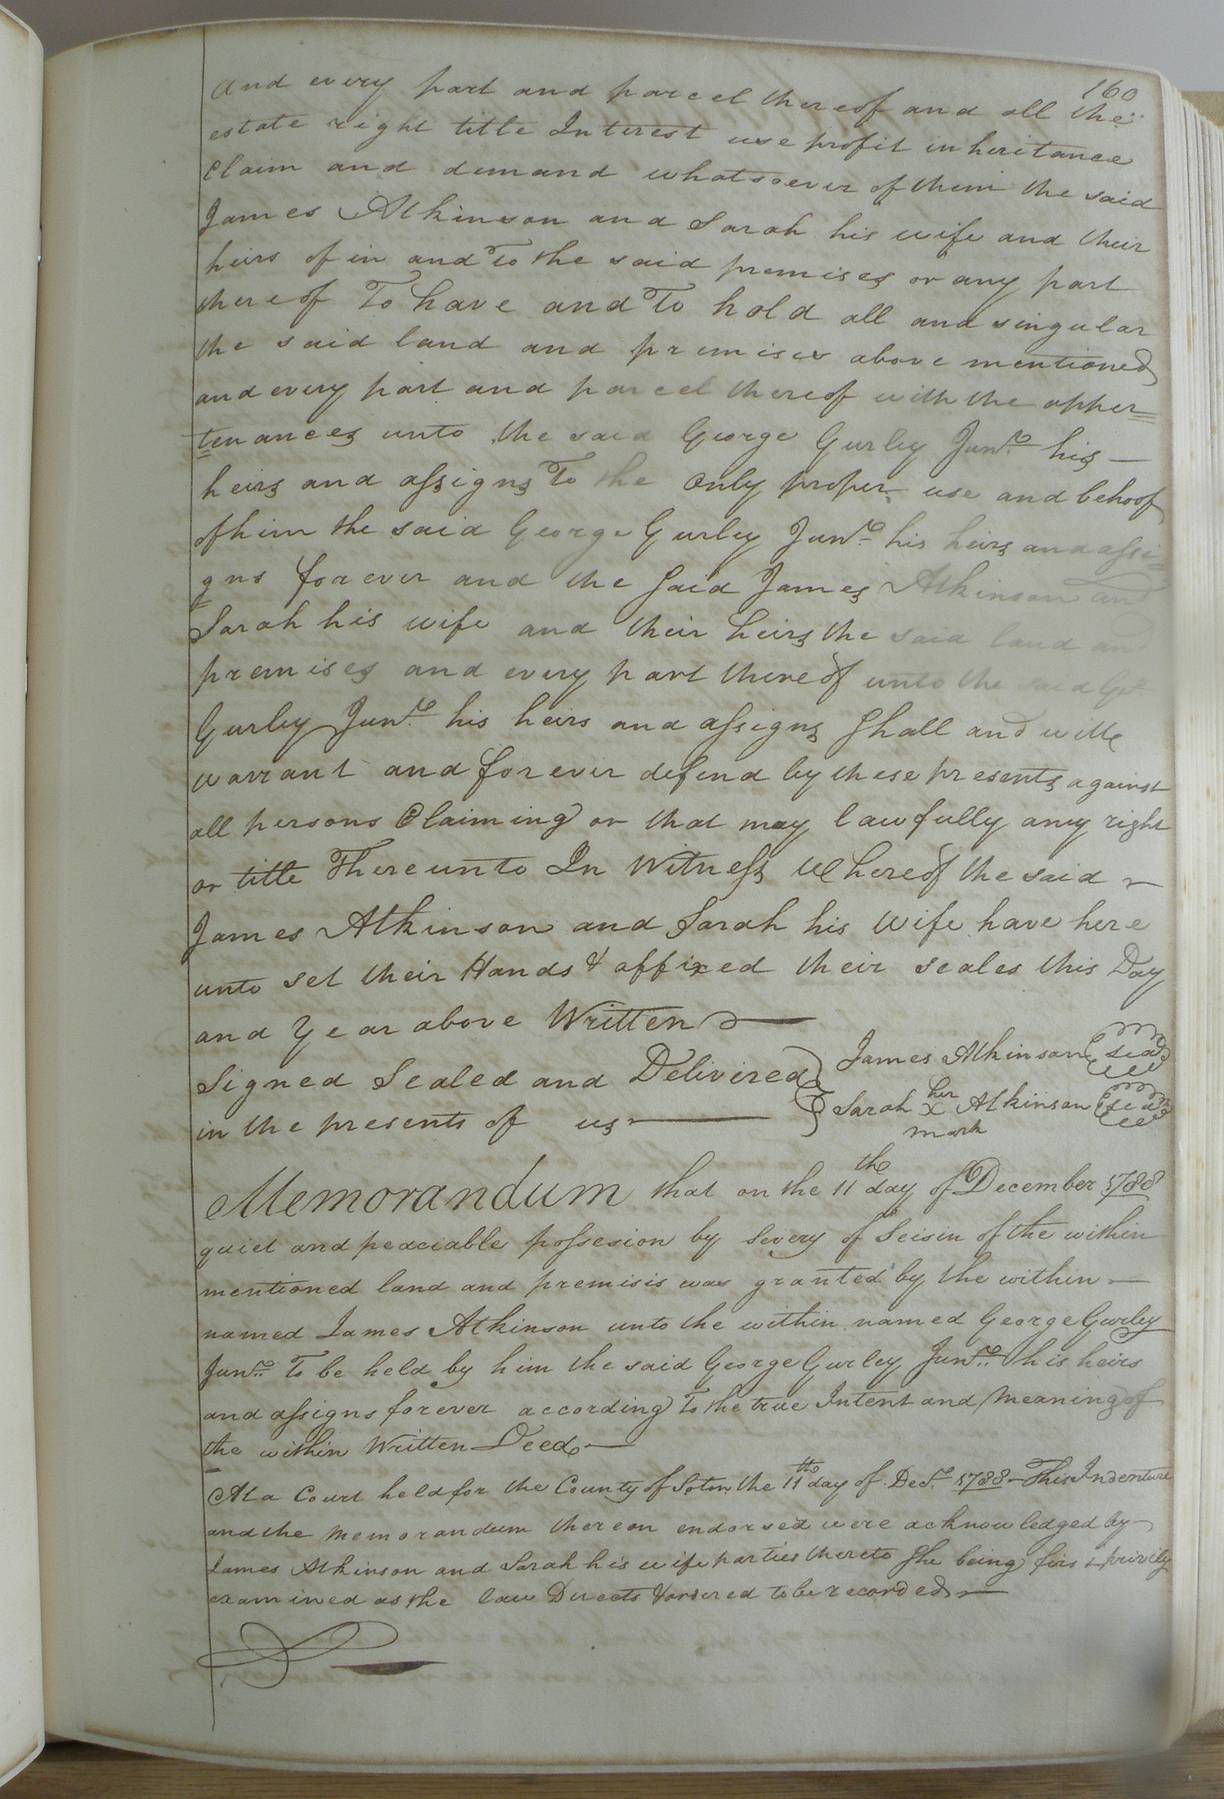 160
and every part and parcel thereof and all the
estate right title Interest use profit inheritance
Claim and demand whatsoever of them the said
James Atkinson and Sarah his wife and their
heirs of in and To the said premises or any part
thereof To have and To hold all and singular
the said land and premises above mentioned
and every part and parcel thereof with the apper=
tenances unto the said George Gurley Junr. his —
heirs and assigns To the only proper use and behoof
of him the said George Gurley Junr. his heirs and assi=
gns forever and the Said James Atkinson and
Sarah his wife and their heirs the said land and
premises and every part thereof unto the said Ge
Gurley Junr. his heirs and assigns Shall and will
warrant and forever defend by these presents against
all persons Claiming or that may lawfully any right
or title Thereunto In Witness Whereof the said
James Atkinson and Sarah his Wife have here
unto set their Hands & affixed their seales this Day
and Year above Written —
Signed Sealed and Delivired
in the presents of us —
James Atkinson seal
Sarah her X mark Atkinson seal
Memorandum that on the 11th day of December 1788
quiet and peaciable possesion by livery of Seisin of the within
mentioned land and premisis was granted by the within —
named James Atkinson unto the within named George Gurley
Junr. To be held by him the said George Gurley Junr. his heirs
and assigns forever according To the true Intent and Meaning of
the within Written Deed —
At a Court held for the County of Soton. the 11th day of Decr. 1788 — This Indenture
and the Memorandum thereon endorsed were acknowledged by
James Atkinson and Sarah his wife parties thereto She being first privily
examined as the law Directs & ordered to be recorded —